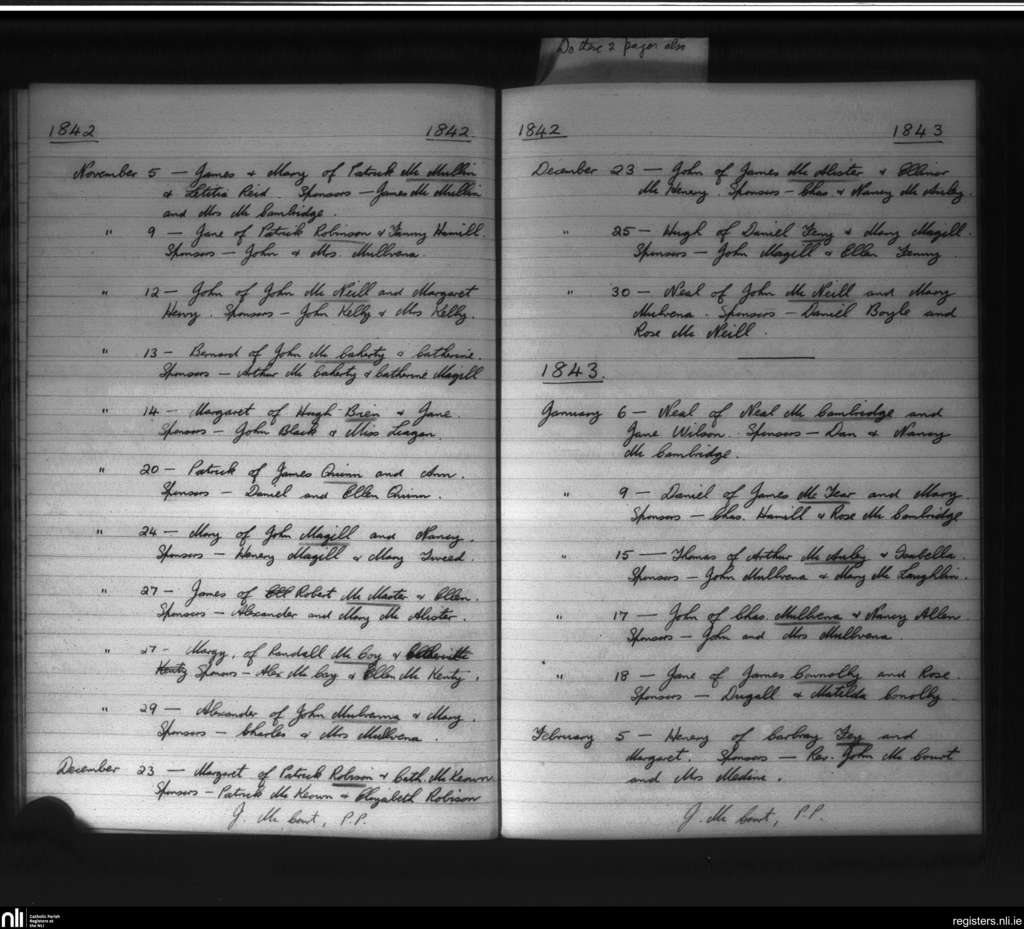 Do these 2 pages also
1842 1842
November 5 — James & Mary of Patrick Mc Mullin
& Letitia Reid. Sponsors — James Mc Mullin
and Mrs Mc Cambridge.
" 9 — Jane of Patrick Robinson & Fanny Hamill.
Sponsors — John & Mrs. Mullvena.
" 12 — John of John Mc Neill and Margaret
Henry. Sponsors — John Kelly & Mrs Kelly.
" 13 — Bernard of John Mc Caherty & Catherine.
Sponsors — Arthur Mc Caherty & Catherine Magill
" 14 — Margaret of Hugh Brien & Jane.
Sponsors — John Black & Miss Leagan.
" 20 — Patrick of James Quinn and Ann.
Sponsors — Daniel and Ellen Quinn.
" 24 — Mary of John Magill and Nancy.
Sponsors — Henery Magill & Mary Tweed.
" 27 — James of Ell Robert Mc Master & Ellen.
Sponsors — Alexander and Mary Mc Alister.
" 27 — Margy. of Randall Mc Coy &
Kenty Sponsors — Alex Mc Coy & Ellen Mc Kenty.
" 29 — Alexander of John Mulvenna & Mary.
Sponsors — Charles & Mrs Mullvena.
December 23 — Margaret of Patrick Robison & Cath. Mc Keown
Sponsors — Patrick Mc Keown & Elizabeth Robison
J. Mc Court, P.P.
1842 1843
December 23 — John of James Mc Alister & Ellinor
Mc Henery. Sponsors — Chas & Nancy Mc Auley.
" 25 — Hugh of Daniel Feny & Mary Magill.
Sponsors — John Magill & Ellen Fenny.
" 30 — Neal of John Mc Neill and Mary
Mulvena. Sponsors — Daniel Boyle and
Rose Mc Neill.
1843.
January 6 — Neal of Neal Mc Cambridge and
Jane Wilson. Sponsors — Dan & Nancy
Mc Cambridge.
" 9 — Daniel of James Mc Fear and Mary.
Sponsors — Chas. Hamill & Rose Mc Cambridge
" 15 — Thomas of Arthur Mc Auley & Isabella.
Sponsors — John Mullvena & Mary Mc Laughlin.
" 17 — John of Chas. Mulhvena & Nancy Allen.
Sponsors — John and Mrs Mullvena
" 18 — Jane of James Connolly and Rose.
Sponsors — Dugall & Matilda Conolly
February 5 — Henery of Carbray Fey and
Margaret. Sponsors — Rev. John Mc Court
and Mrs Medine.
J. Mc Court, P.P.
nli Catholic Parish
Registers at
the NLI
registers.nli.ie